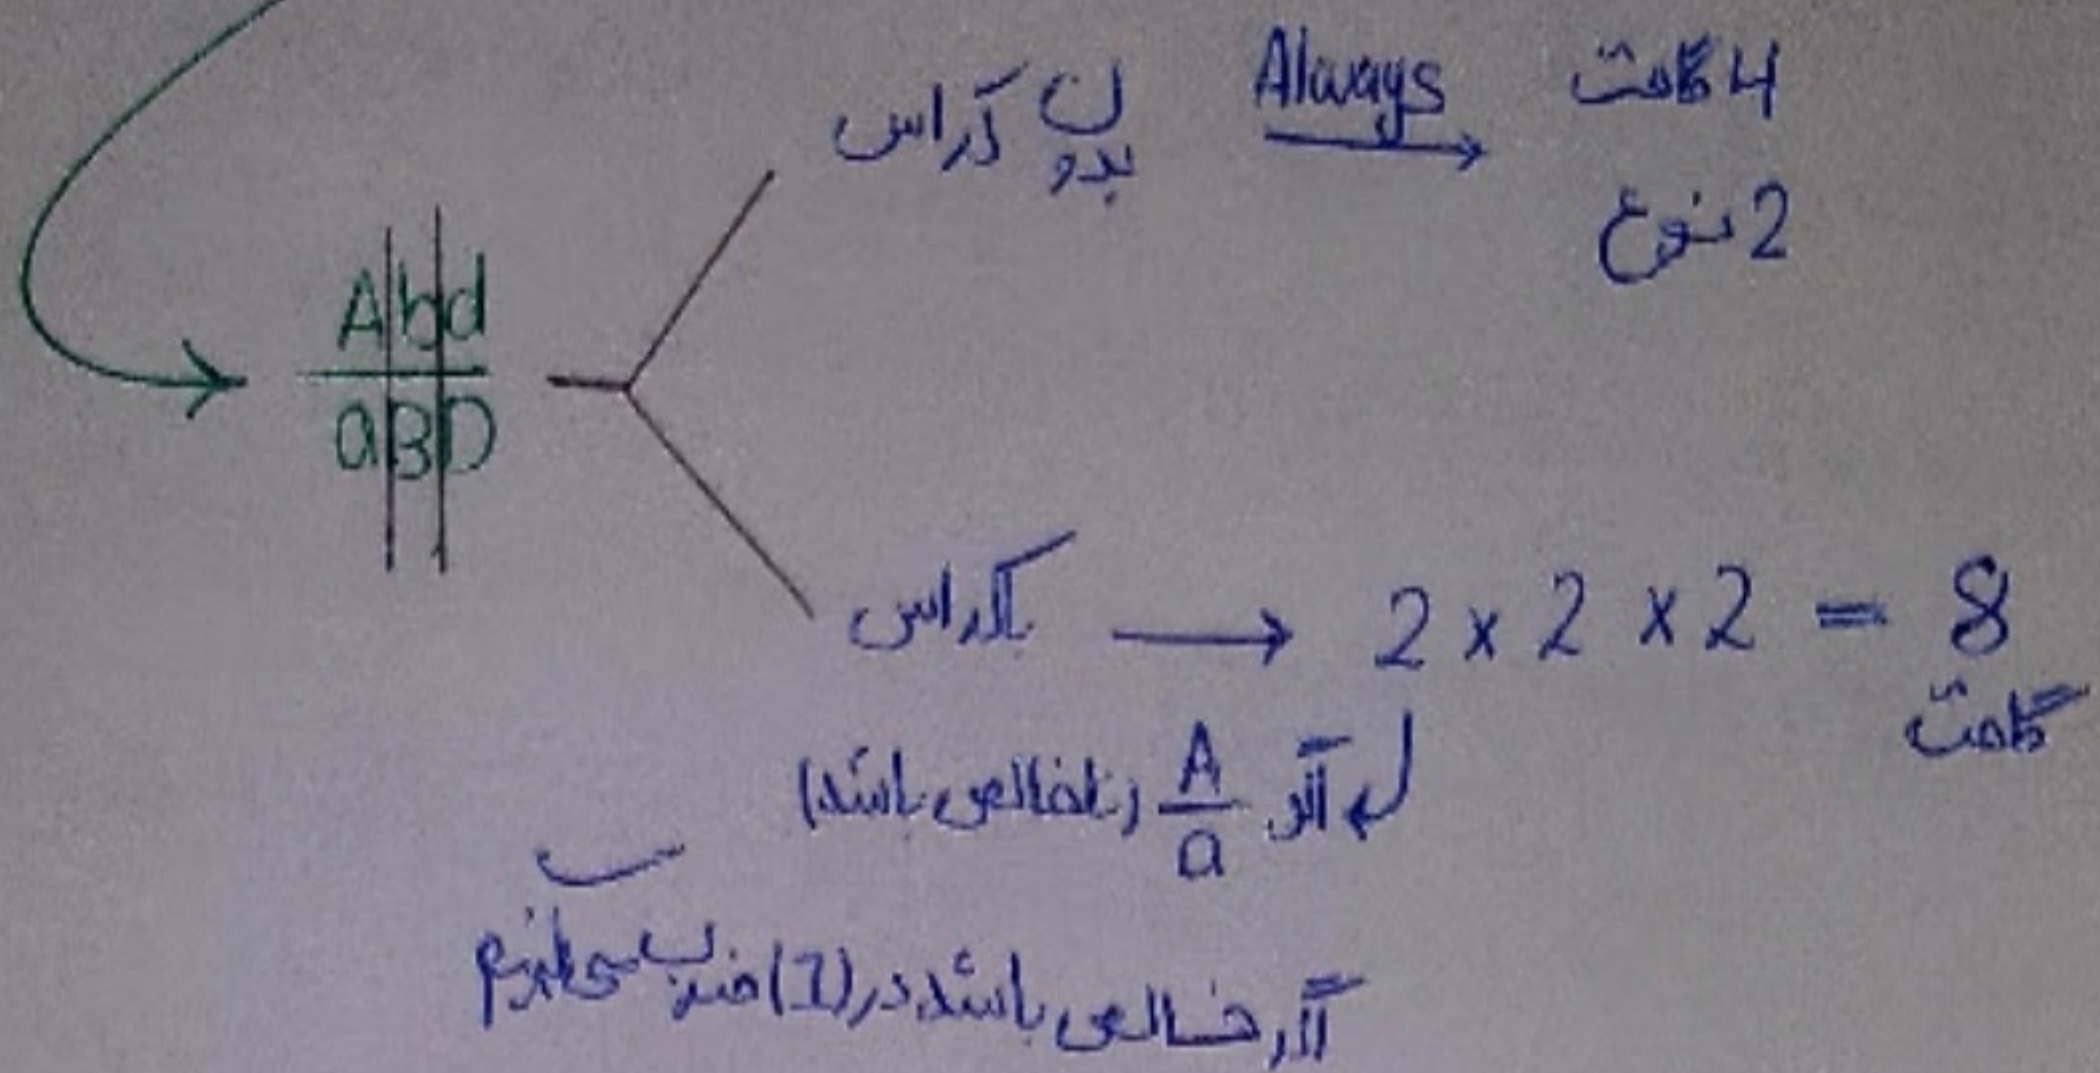 بدون کراس Always → 4 گامت
2 نوع
Abd
aBD
با کراس → 2 × 2 × 2 = 8
گامت
اگر A/a (ناخالص باشد)
اگر خالص باشد در (1) ضرب می‌کنیم